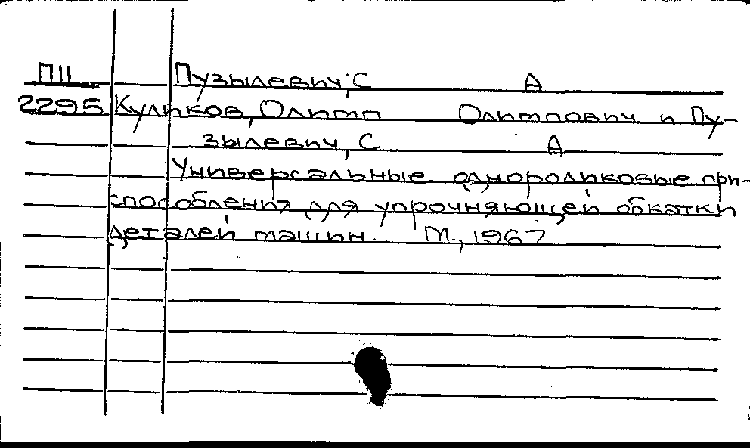 П11 Пузылевич, С А
2295 Куликов, Олимп Олимпович и Пу-
зылевич, С А
Универсальные однороликовые при-
способления для упрочняющей обкатки
деталей машин. М., 1967